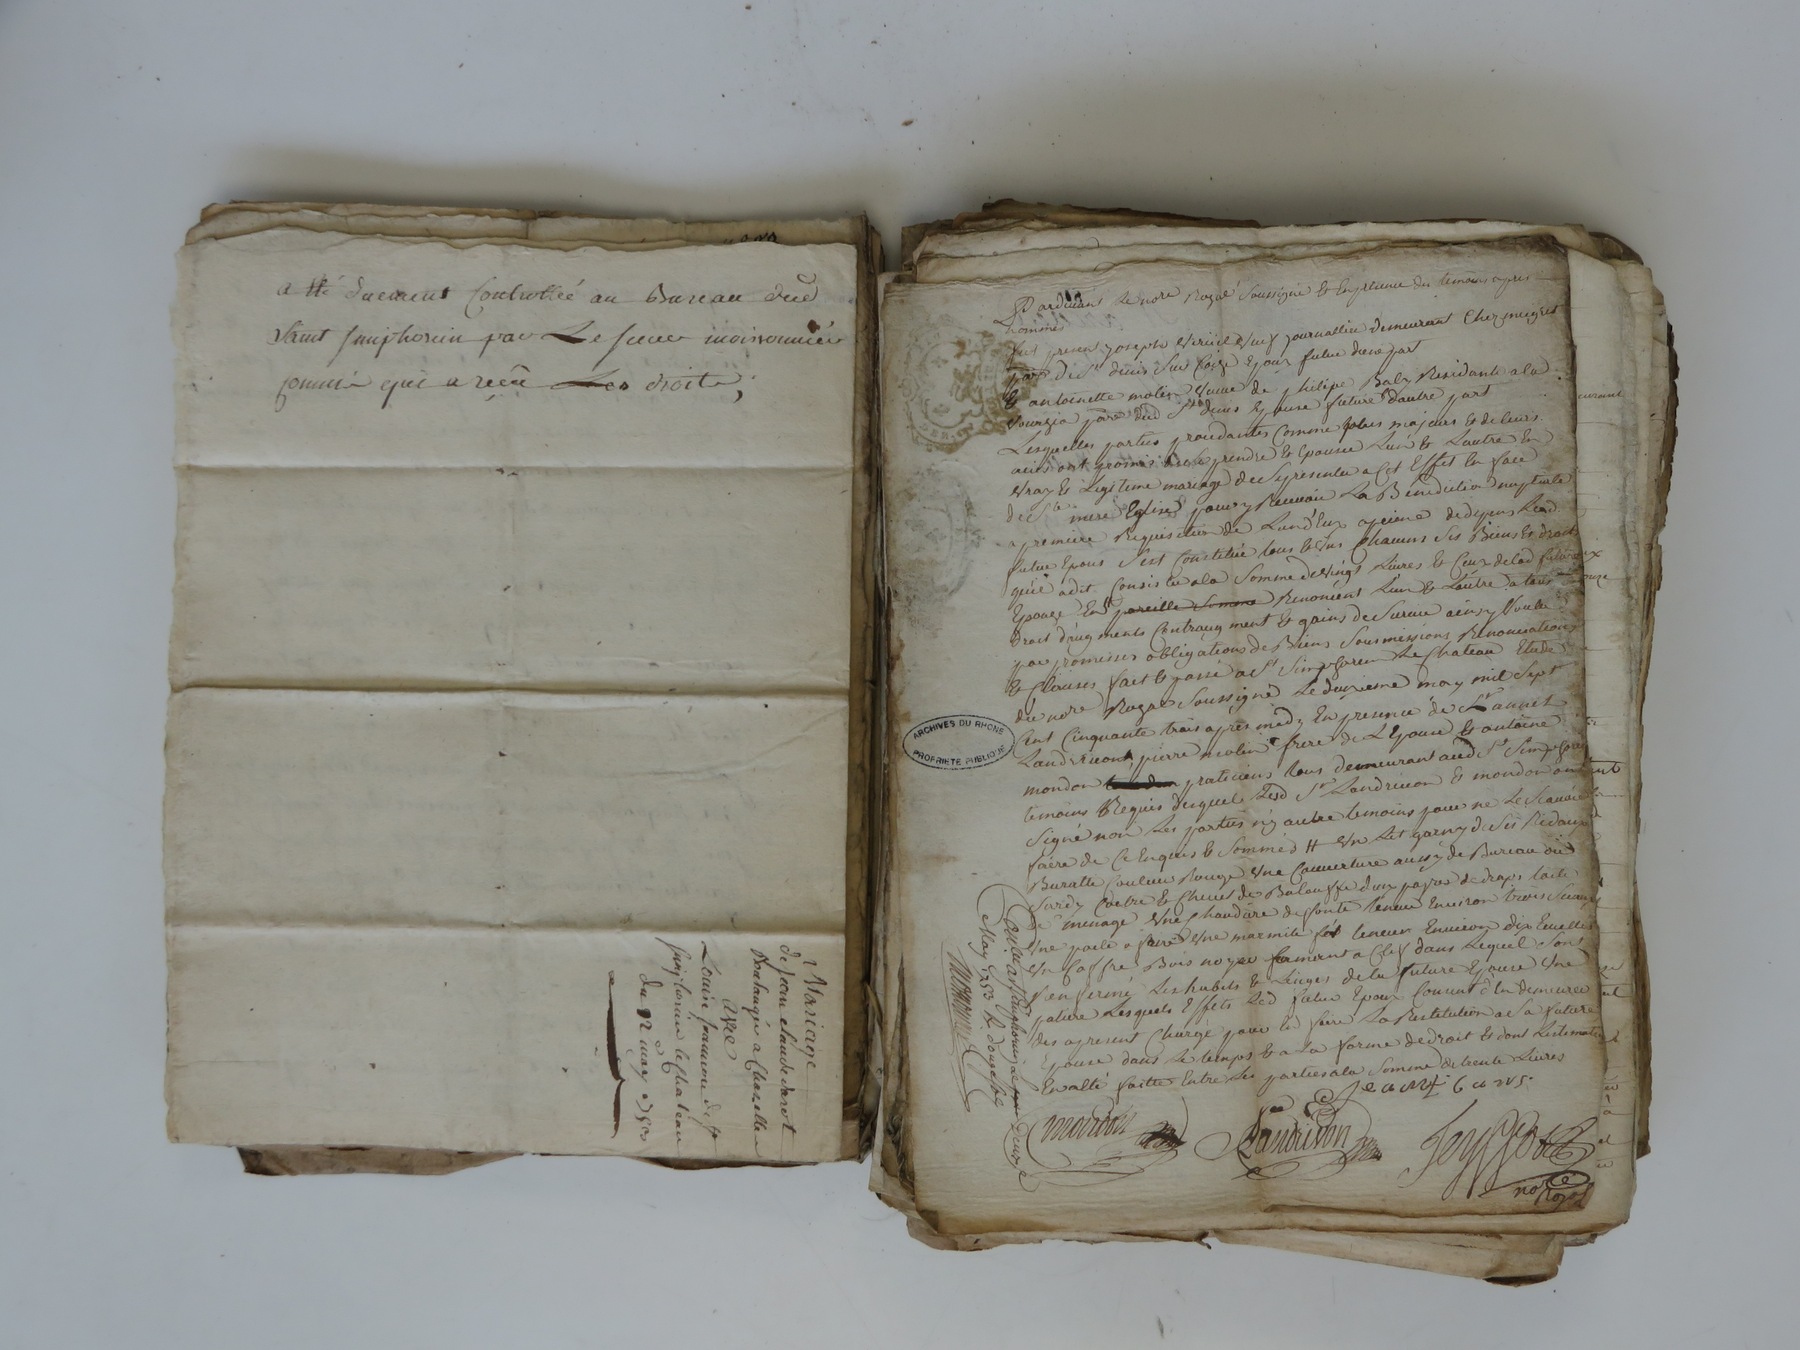 a été duement Controllé au Bureau dud
Saint Simphorien par Le sieur moissonnier
commis qui a reçu Les droits
Mariage
de jean claude
Boulanger a Chazelle
avec
Louise
simphorien le Chateau
du 12 may 1753
Pardevant Le nore Royal soussigné & En presence des temoins apres
nommés
fut present joseph veuf journallier demeurant Chez
parr. de St denis Sur Coize Epoux futur d'une part
& antoinette molin veuve de philipe Baly Residante a la
parr. dud St denis Epouse future d'autre part
Lesquelles parties procedantes Comme majeurs & de leurs
ont promis se prendre & Epouser L'un & L'autre En
vray & Legitime mariage de se presenter a cet Effet En face
de Ste mere Eglise pour y Recevoir La Benediction nuptiale
a premiere Requisition de L'un d'Eux a peine de depens Led
futur Epoux s'est Constitué tous & Uns Chacuns ses Biens & droits
qu'il a dit Consister a la Somme de vingt Livres & Ceux de lad future
Epouze En pareille Somme Renoncent L'un & L'autre a tous
droit d'augments Contraugment & gains de Survie ainsy Voulu
par promesses obligations de Biens Soumissions Renonciations
& Clauses fait & passé a St Simphorien Le Chateau Etude
du nore Royal Soussigné Le deuxieme may mil Sept
Cent Cinquante trois apres midy En presence de Sr annet
Landrivon, pierre molin frere de L'Epouse & antoine
mondon praticiens tous demeurant aud St Simphorien
temoins Requis desquels Led Sr Landrivon & mondon ont
Signé non Les parties ny autre temoins pour ne Le Scavoir
faire de Ce Enquis & Sommés # Un Lit garny de Ses Rideaux
Buratte Couleur Rouge Une Couverture aussy de Bureau ou
Sardy Coetre & Chevet de Balouffe deux payres de draps toile
de menage Une Chaudiere de fonte teneur Environ trois Seaux
Une poele a frire Une marmite fer teneur Environ dix Ecuelles
Un Coffre Bois noyer fermant a Clef dans Lequel Sont
Renfermé Les habits & Linges de la future Epouse Une
Lesquels Effets Led futur Epoux Convient & En demeurer
des a present Chargé pour En faire La Restitution a Sa future
Epouse dans Le temps & a La forme de droit & dont L'estimation
En a Eté faitte Entre Les parties a la Somme de trente Livres
mondon
Landrivon
nore
Royal
Controllé a St Simphorien Le
May 1753 R douze sols
ARCHIVES DU RHONE
PROPRIETE PUBLIQUE